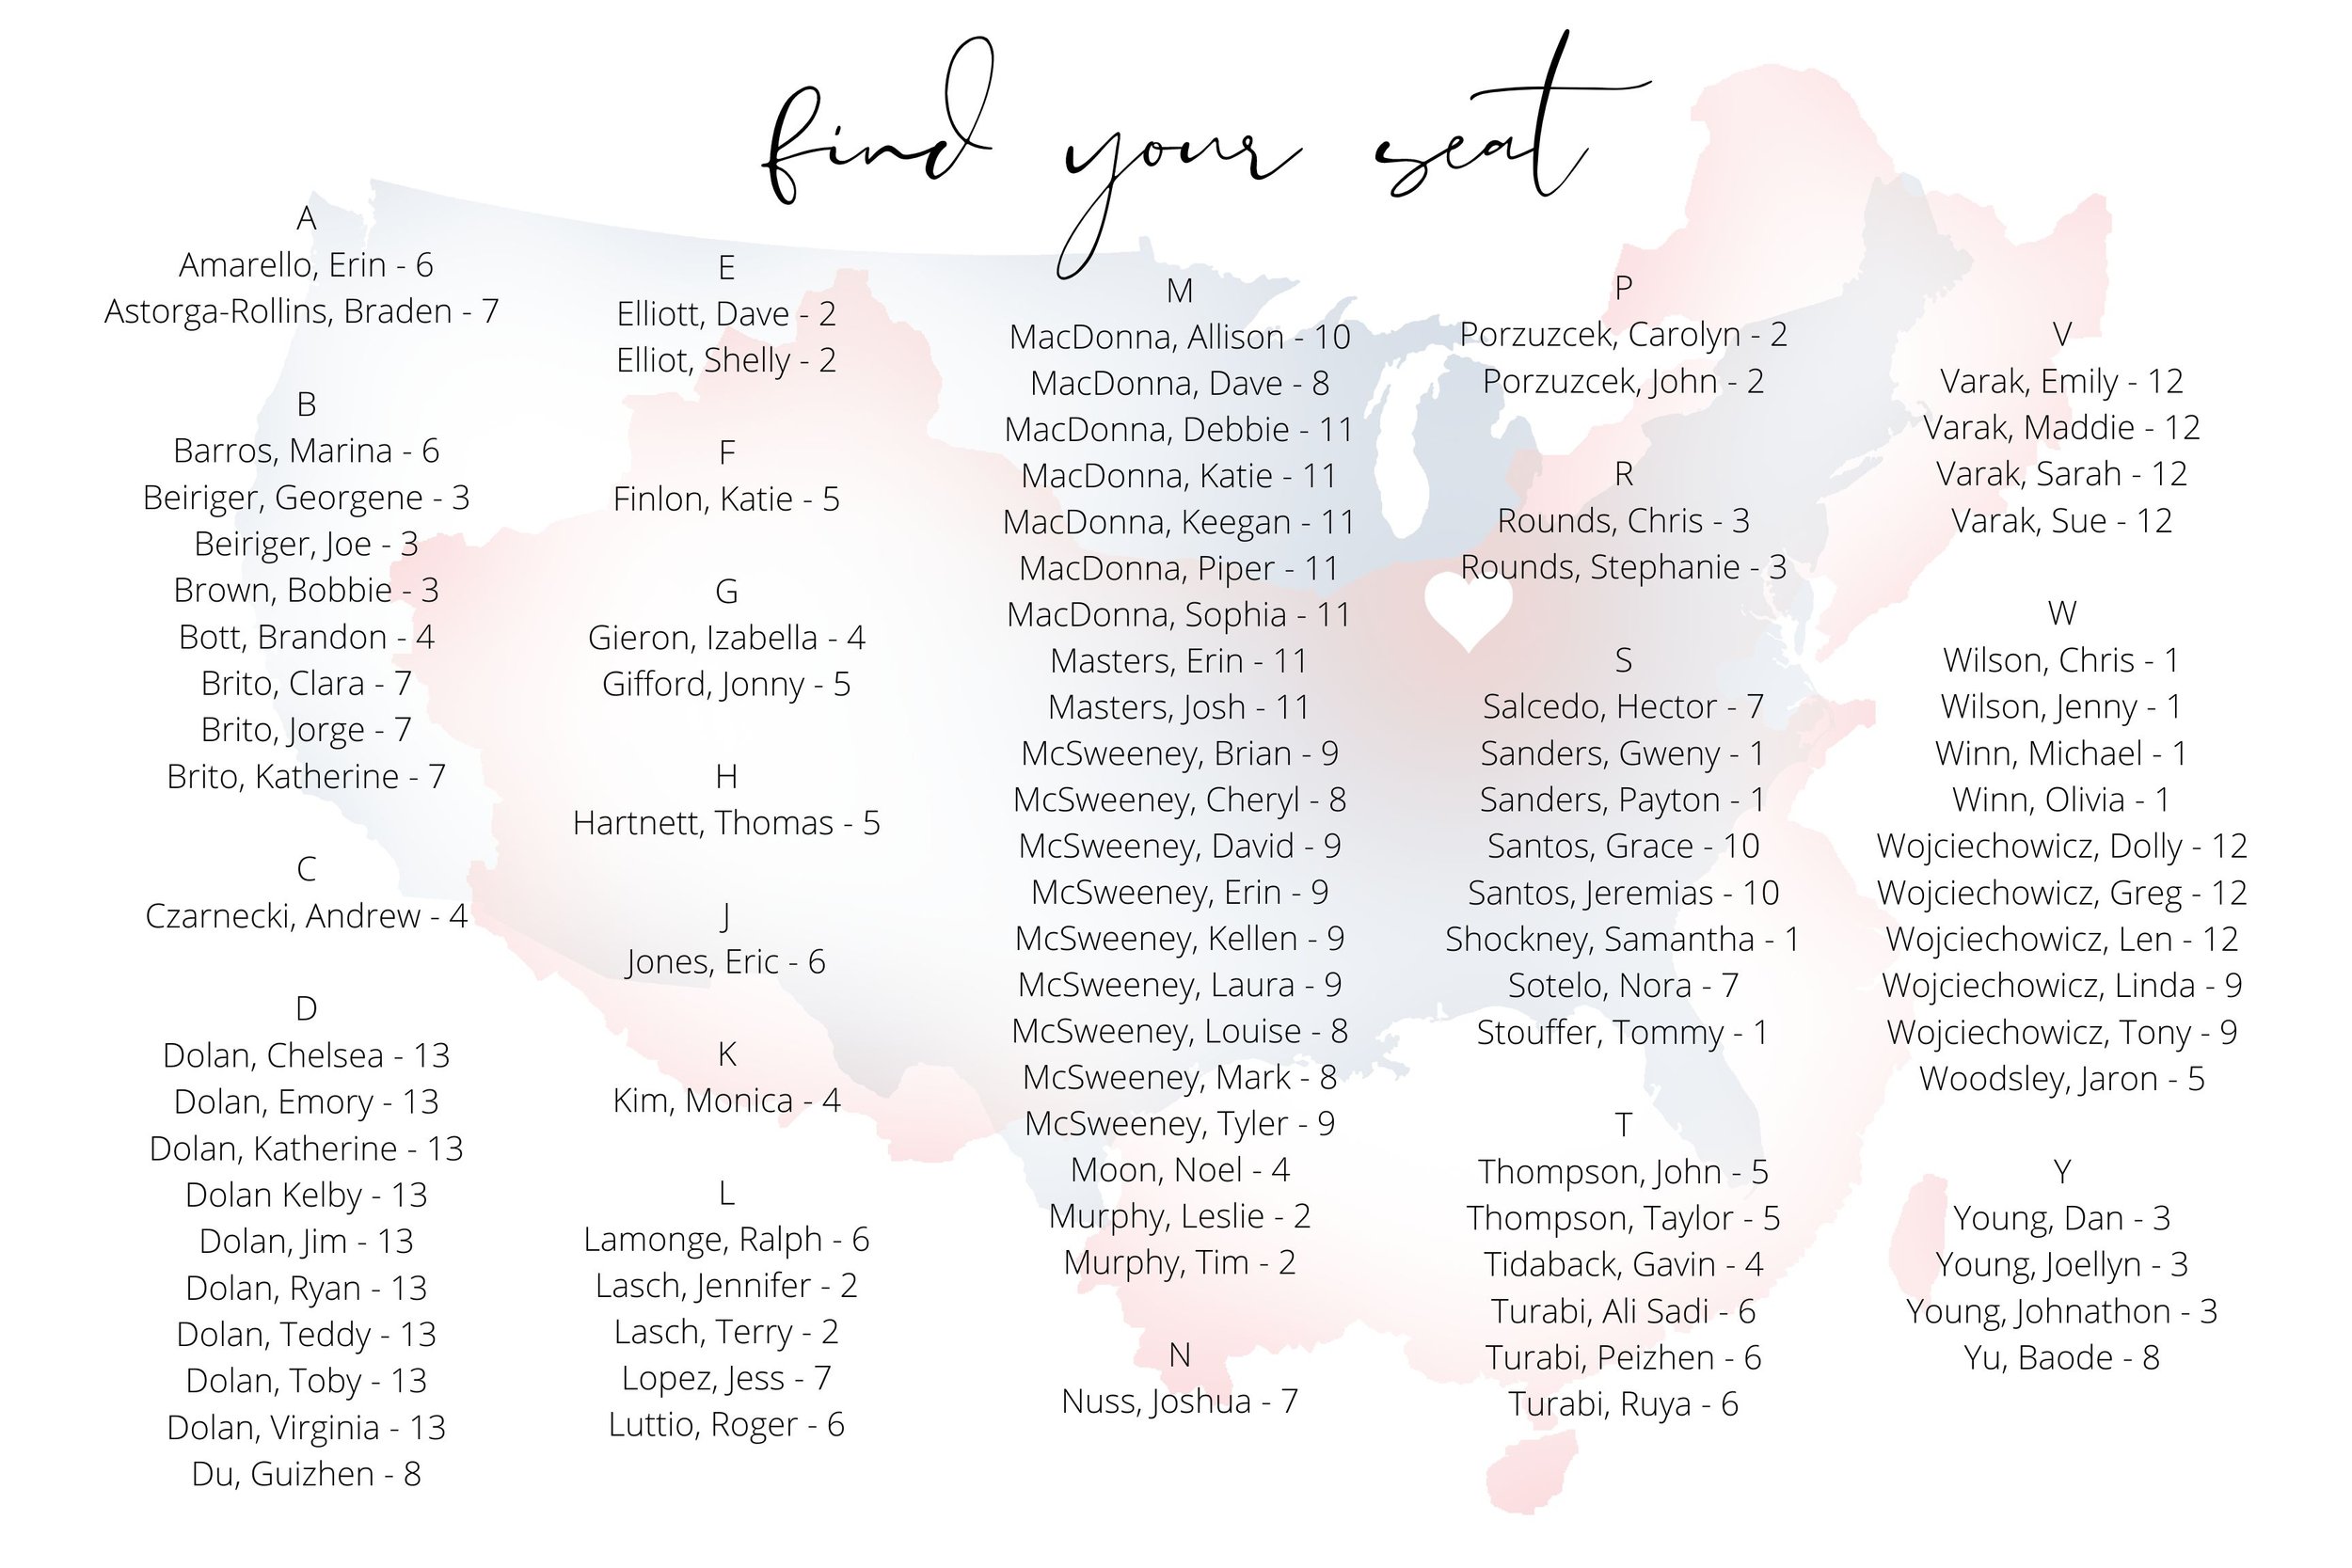 find your seat
A
Amarello, Erin - 6
Astorga-Rollins, Braden - 7
B
Barros, Marina - 6
Beiriger, Georgene - 3
Beiriger, Joe - 3
Brown, Bobbie - 3
Bott, Brandon - 4
Brito, Clara - 7
Brito, Jorge - 7
Brito, Katherine - 7
C
Czarnecki, Andrew - 4
D
Dolan, Chelsea - 13
Dolan, Emory - 13
Dolan, Katherine - 13
Dolan Kelby - 13
Dolan, Jim - 13
Dolan, Ryan - 13
Dolan, Teddy - 13
Dolan, Toby - 13
Dolan, Virginia - 13
Du, Guizhen - 8
E
Elliott, Dave - 2
Elliot, Shelly - 2
F
Finlon, Katie - 5
G
Gieron, Izabella - 4
Gifford, Jonny - 5
H
Hartnett, Thomas - 5
J
Jones, Eric - 6
K
Kim, Monica - 4
L
Lamonge, Ralph - 6
Lasch, Jennifer - 2
Lasch, Terry - 2
Lopez, Jess - 7
Luttio, Roger - 6
M
MacDonna, Allison - 10
MacDonna, Dave - 8
MacDonna, Debbie - 11
MacDonna, Katie - 11
MacDonna, Keegan - 11
MacDonna, Piper - 11
MacDonna, Sophia - 11
Masters, Erin - 11
Masters, Josh - 11
McSweeney, Brian - 9
McSweeney, Cheryl - 8
McSweeney, David - 9
McSweeney, Erin - 9
McSweeney, Kellen - 9
McSweeney, Laura - 9
McSweeney, Louise - 8
McSweeney, Mark - 8
McSweeney, Tyler - 9
Moon, Noel - 4
Murphy, Leslie - 2
Murphy, Tim - 2
N
Nuss, Joshua - 7
P
Porzuzcek, Carolyn - 2
Porzuzcek, John - 2
R
Rounds, Chris - 3
Rounds, Stephanie - 3
S
Salcedo, Hector - 7
Sanders, Gweny - 1
Sanders, Payton - 1
Santos, Grace - 10
Santos, Jeremias - 10
Shockney, Samantha - 1
Sotelo, Nora - 7
Stouffer, Tommy - 1
T
Thompson, John - 5
Thompson, Taylor - 5
Tidaback, Gavin - 4
Turabi, Ali Sadi - 6
Turabi, Peizhen - 6
Turabi, Ruya - 6
V
Varak, Emily - 12
Varak, Maddie - 12
Varak, Sarah - 12
Varak, Sue - 12
W
Wilson, Chris - 1
Wilson, Jenny - 1
Winn, Michael - 1
Winn, Olivia - 1
Wojciechowicz, Dolly - 12
Wojciechowicz, Greg - 12
Wojciechowicz, Len - 12
Wojciechowicz, Linda - 9
Wojciechowicz, Tony - 9
Woodsley, Jaron - 5
Y
Young, Dan - 3
Young, Joellyn - 3
Young, Johnathon - 3
Yu, Baode - 8